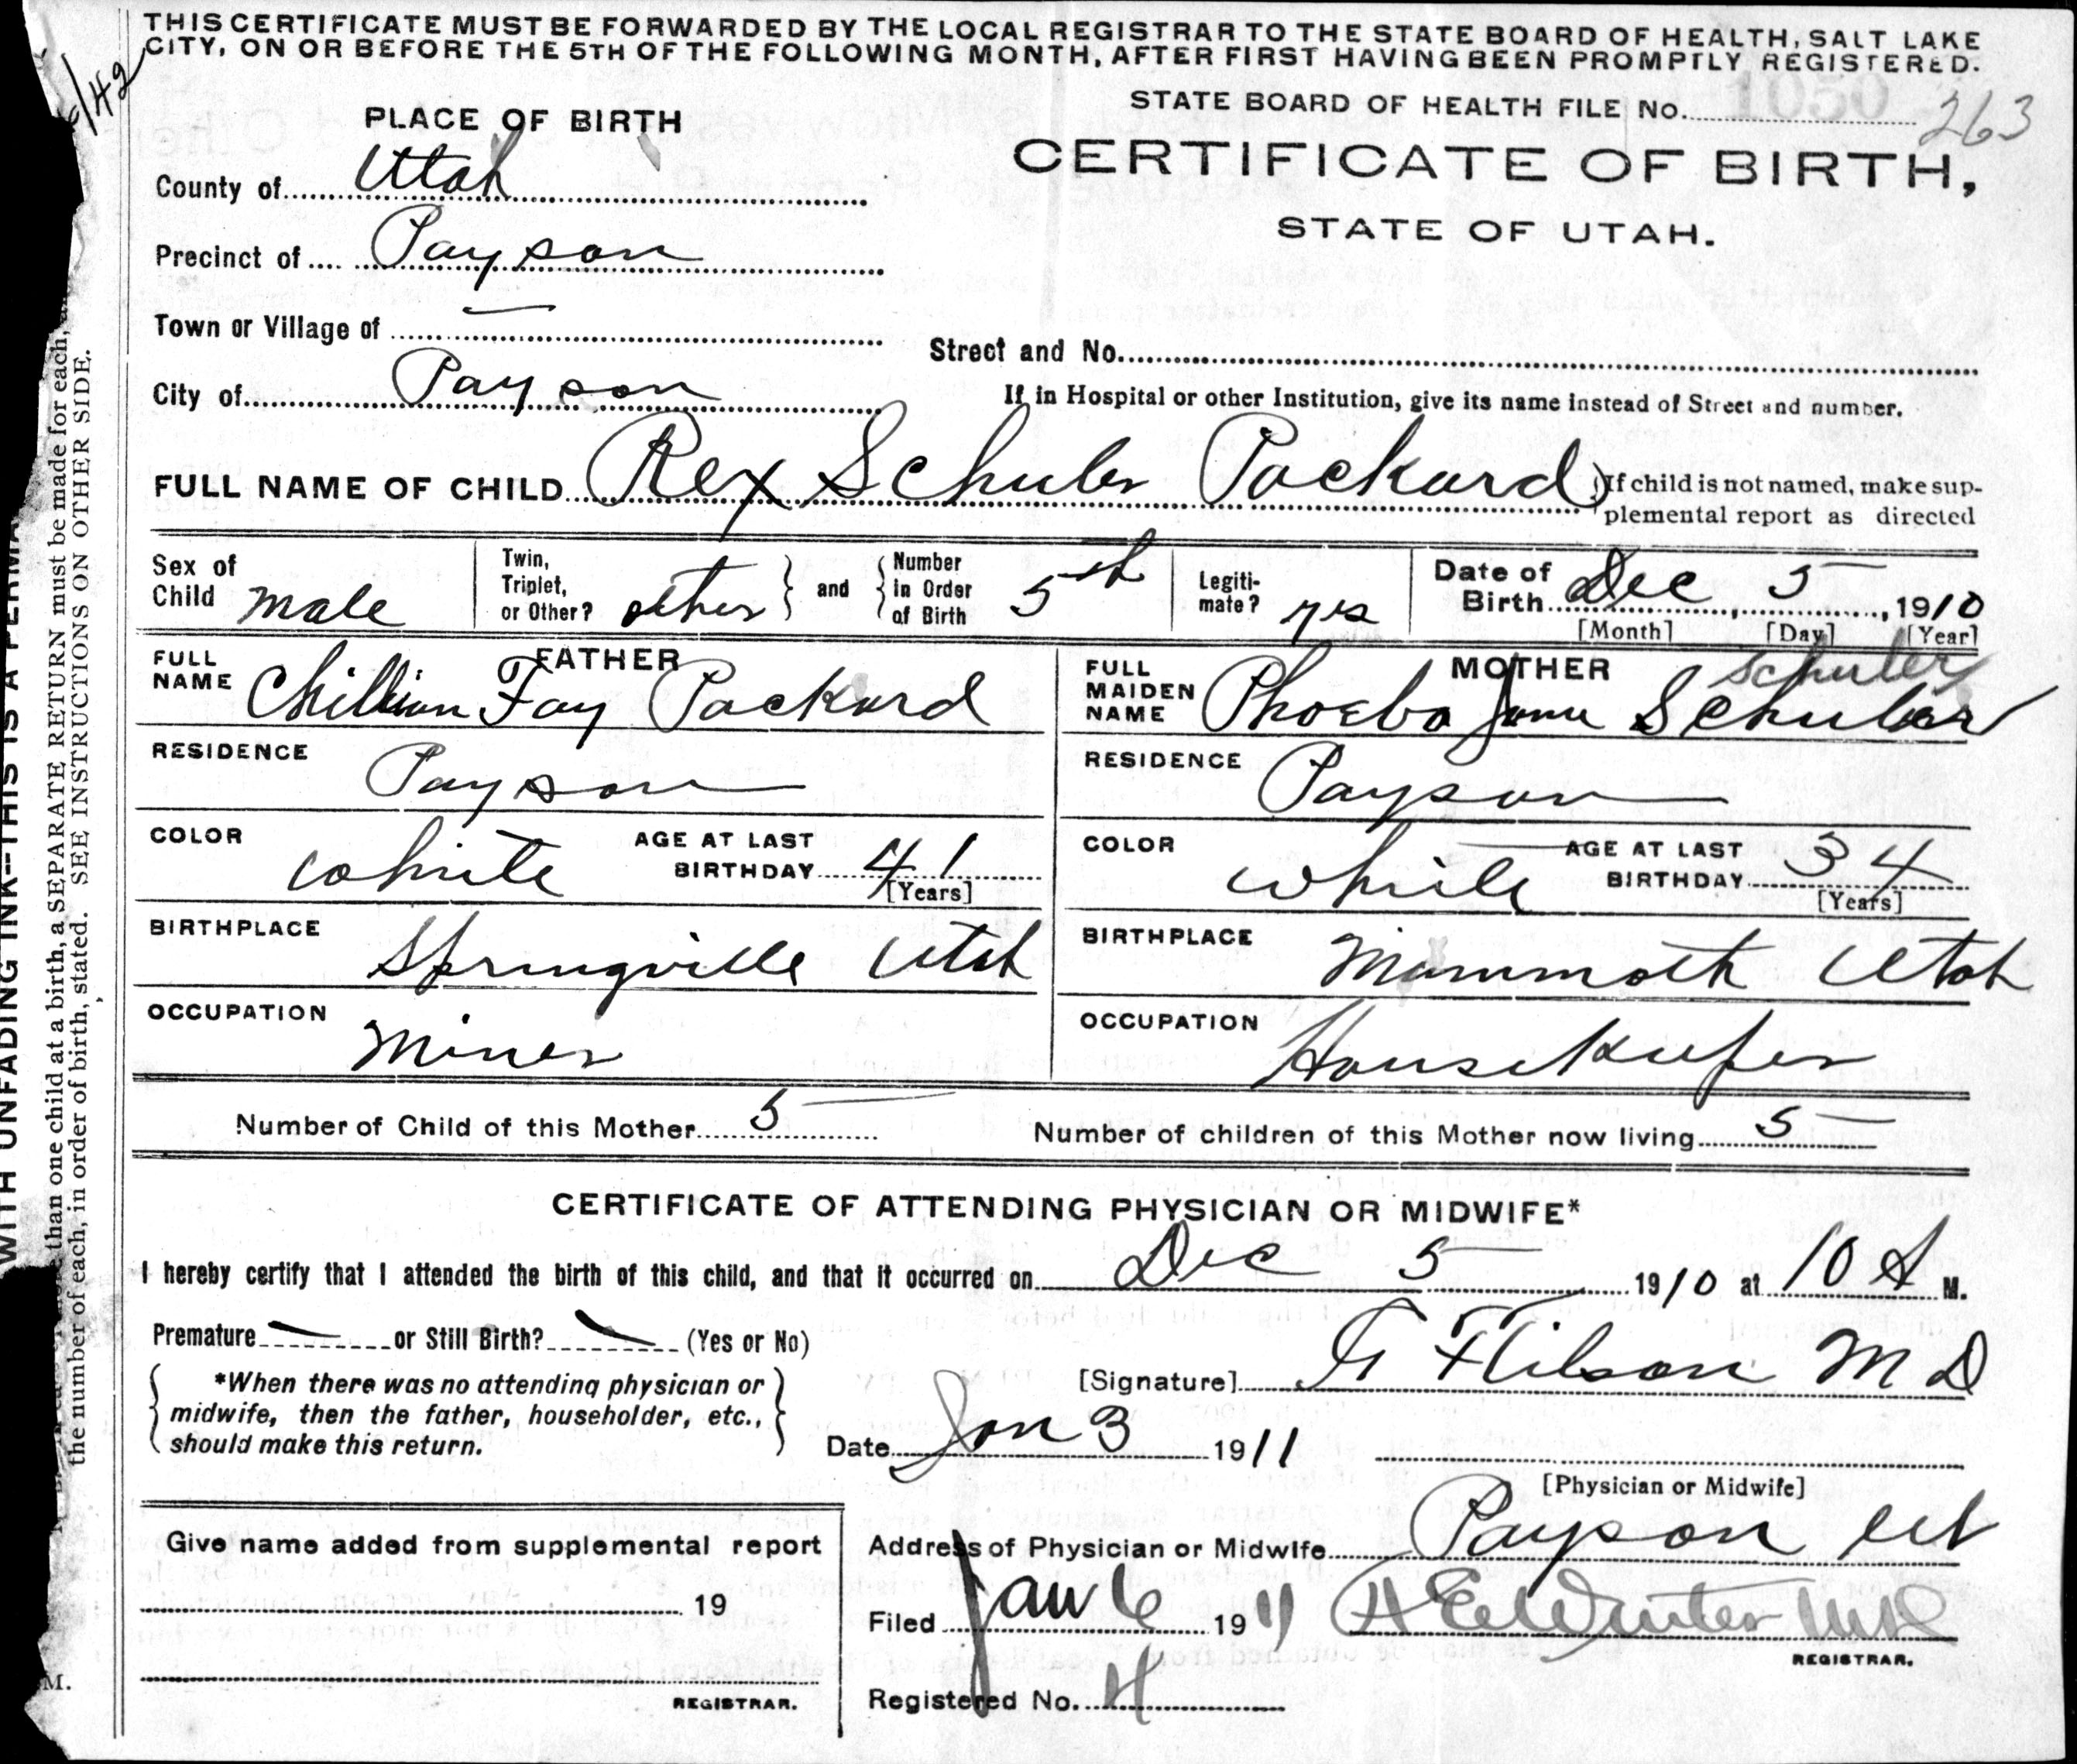 THIS CERTIFICATE MUST BE FORWARDED BY THE LOCAL REGISTRAR TO THE STATE BOARD OF HEALTH, SALT LAKE
CITY, ON OR BEFORE THE 5TH OF THE FOLLOWING MONTH, AFTER FIRST HAVING BEEN PROMPTLY REGISTERED.
STATE BOARD OF HEALTH FILE No. 1050 263
CERTIFICATE OF BIRTH,
STATE OF UTAH.
PLACE OF BIRTH
County of Utah
Precinct of Payson
Town or Village of —
City of Payson
Street and No.
If in Hospital or other Institution, give its name instead of Street and number.
FULL NAME OF CHILD Rex Schuler Packard
If child is not named, make sup-
plemental report as directed
Sex of Child male
Twin, Triplet, or Other? other and Number in Order of Birth 5th
Legiti-mate? yes
Date of Birth Dec 5, 1910
[Month] [Day] [Year]
FATHER
FULL NAME Chillian Fay Packard
RESIDENCE Payson
COLOR white AGE AT LAST BIRTHDAY 41
[Years]
BIRTHPLACE Springville Utah
OCCUPATION Miner
MOTHER schuler
FULL MAIDEN NAME Phoebe Jane Schuler
RESIDENCE Payson
COLOR white AGE AT LAST BIRTHDAY 34
[Years]
BIRTHPLACE Mammoth Utah
OCCUPATION Housekeeper
Number of Child of this Mother 5
Number of children of this Mother now living 5
CERTIFICATE OF ATTENDING PHYSICIAN OR MIDWIFE*
I hereby certify that I attended the birth of this child, and that it occurred on Dec 5 1910 at 10 A M.
Premature or Still Birth? (Yes or No)
*When there was no attending physician or
midwife, then the father, householder, etc.,
should make this return.
[Signature] M D
Date Jan 3 1911
[Physician or Midwife]
Address of Physician or Midwife Payson Ut
Give name added from supplemental report
19
REGISTRAR.
Filed Jan 6 1911
REGISTRAR.
Registered No. 4
WITH UNFADING INK—THIS IS A PERMA
than one child at a birth, a SEPARATE RETURN must be made for each,
the number of each, in order of birth, stated. SEE INSTRUCTIONS ON OTHER SIDE.